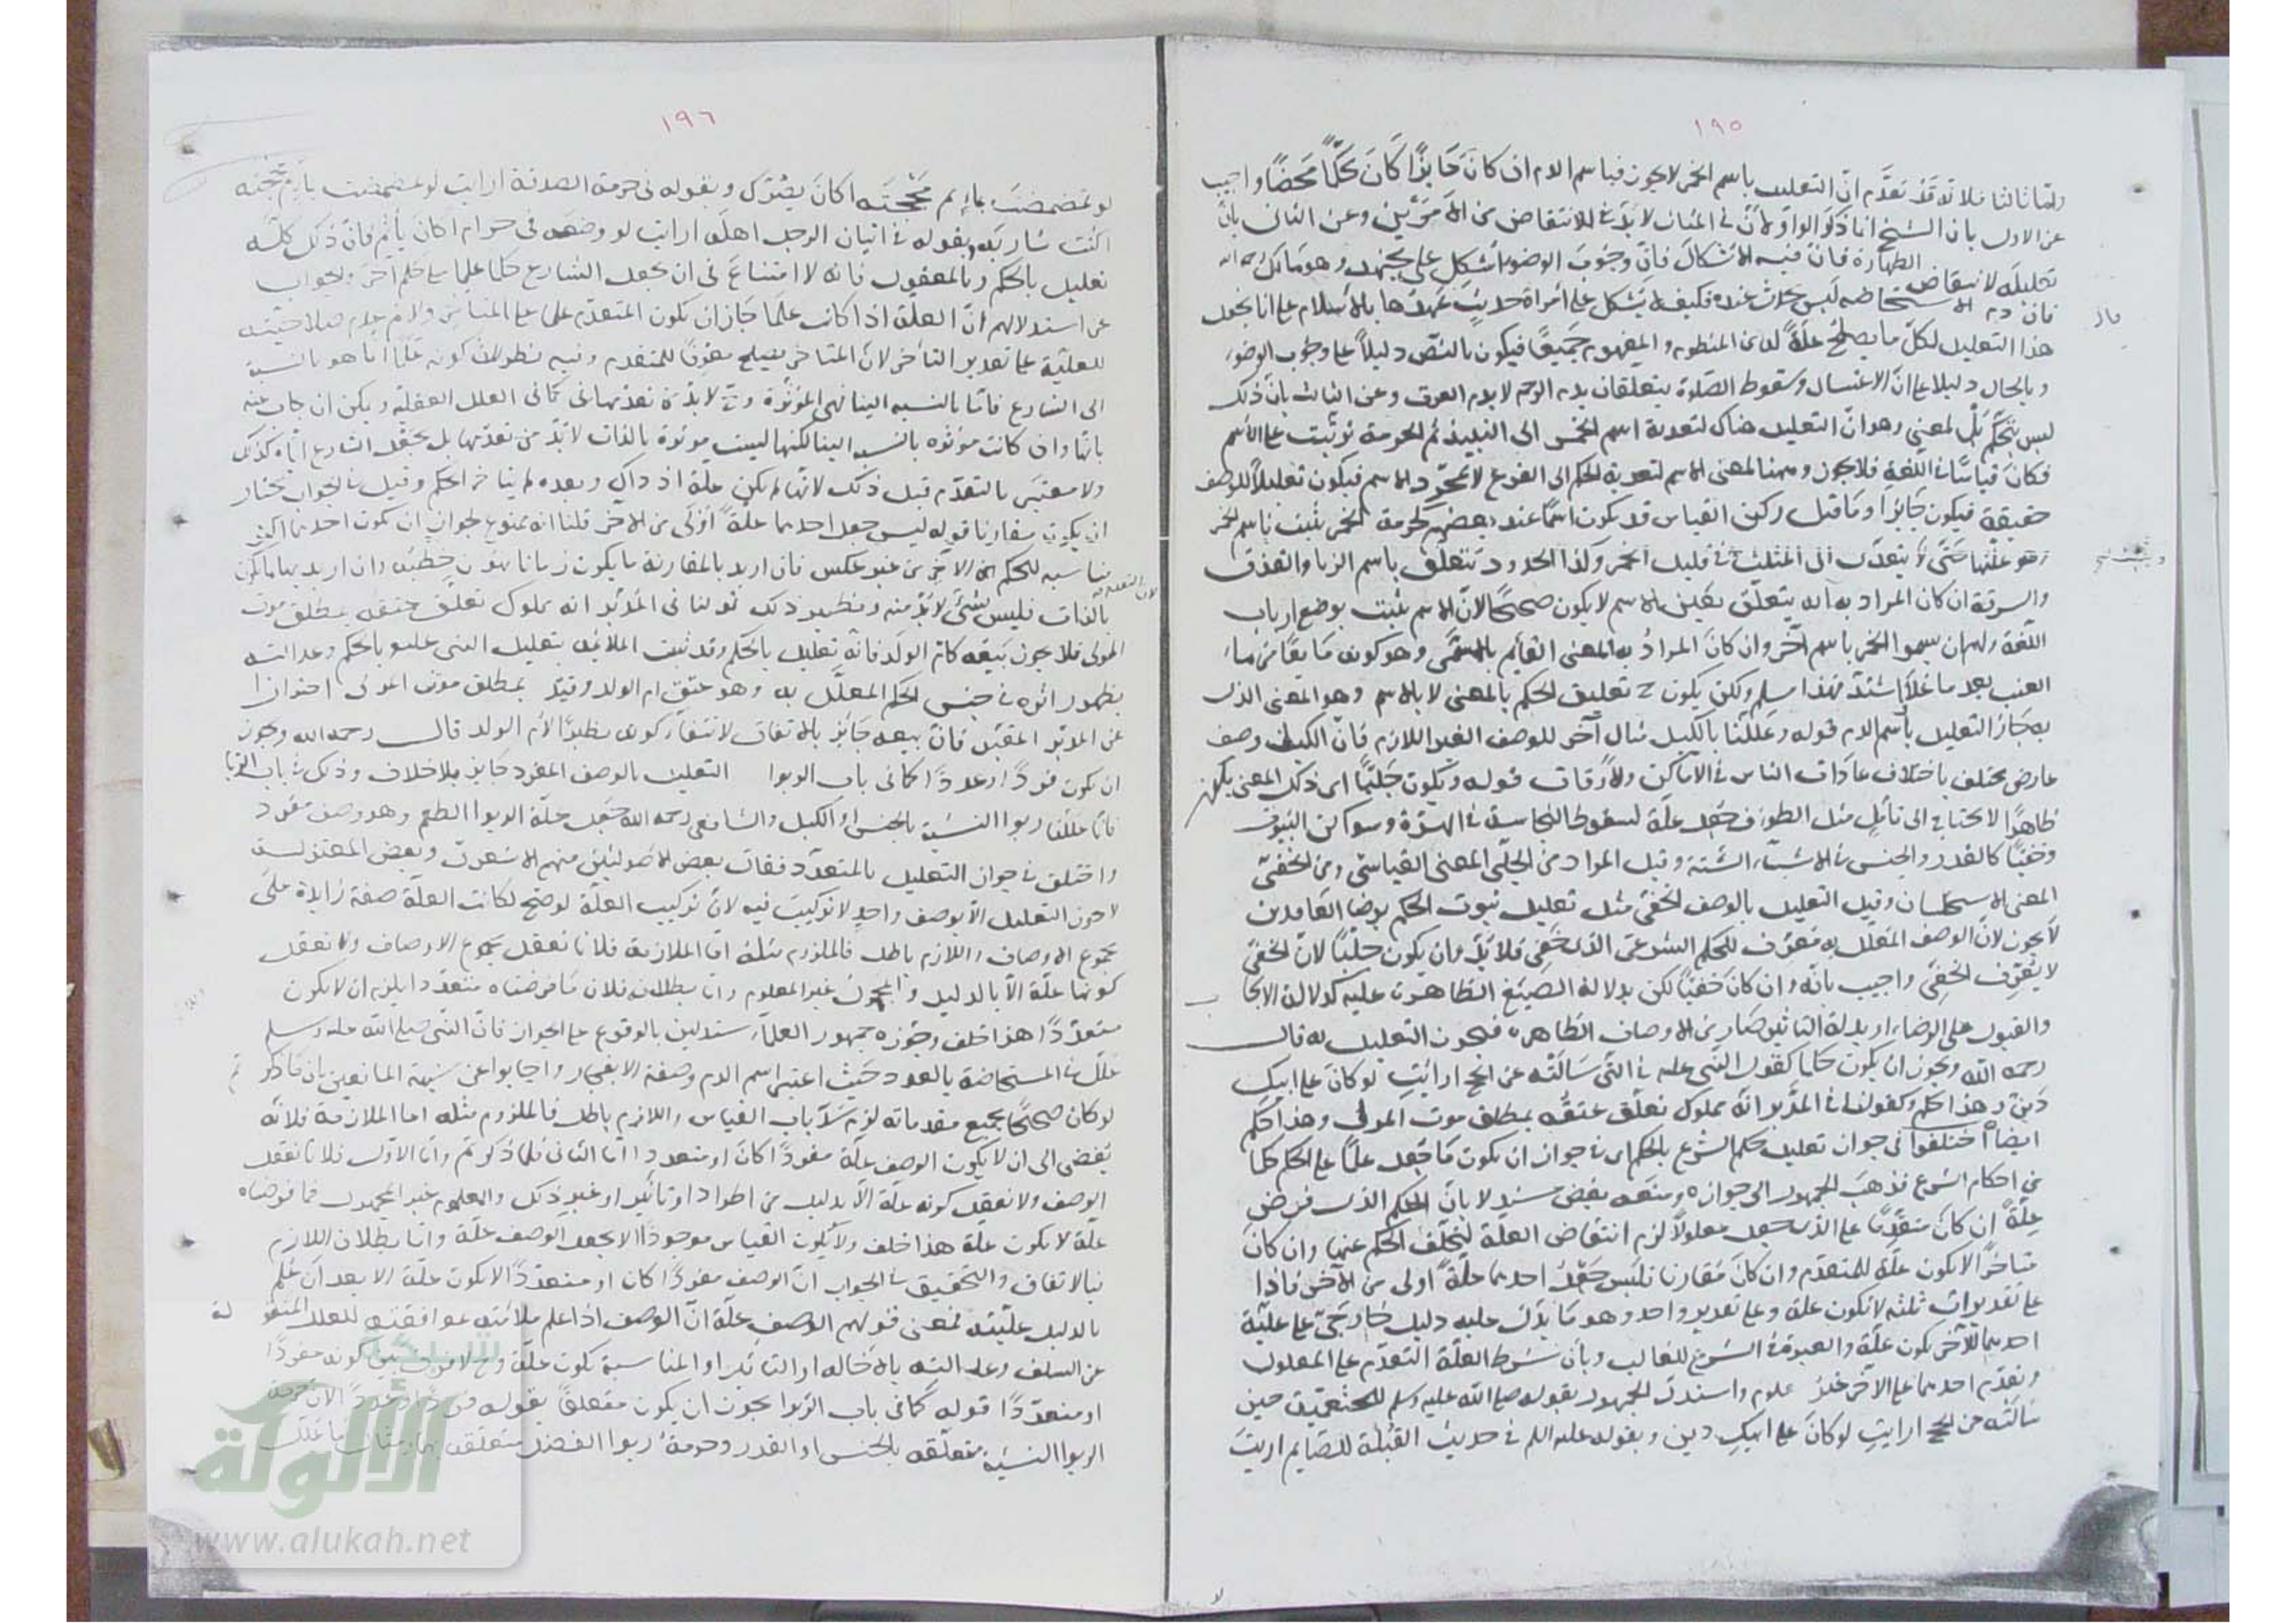 ١٩٥
ولما ثالثا فلانه قد تقدم ان التعليل باسم الخمر لا يجوز فباسم الدم ان كان جايزا كان تحكما محضا واجيب
عن الاول بان الشيخ انما ذكر الواو لان في المثال لا بد في الانتقاض من الامرين وعن الثاني بان
تعليله لانتقاض الطهارة فان فيه الاشكال فان وجوب الوضوء اشكل على مجتهد وهو مالك رحمه الله
فان دم الاستحاضه ليس بحدث عنده فكيف لا يشكل على امراة حديث عهدها بالاسلام على انا نجعل
هذا التعليل لكل ما يصلح علة له من المنطوق والمفهوم جميعا فيكون بالنص دليلا على وجوب الوضوء
وبالحال دليلا على ان الاغتسال وسقوط الصلوة يتعلقان بدم الرحم لا بدم العرق وعن الثالث بان ذلك
ليس بتحكم بل لمعنى وهو ان التعليل هناك لتعدية اسم الخمر الى النبيذ ثم الحرمة ترتبت على الاسم
فكان قياسا في اللغة فلا يجوز وههنا لمعنى الاسم لتعدية الحكم الى الفرع لا مجرد الاسم فيكون تعليلا للوصف
حقيقة فيكون جايزا وما قيل ركن القياس قد يكون اسما عند بعضهم كحرمة الخمر تثبت باسم الخمر
وهو علتها حتى لا يتعدى الى المثلث في قليل الخمر وكذا الحدود تتعلق باسم الزنا والقذف
والسرقة ان كان المراد به انه يتعلق بعين الاسم لا يكون صحيحا لان الاسم يثبت بوضع ارباب
اللغة ولهم ان يسموا الخمر باسم آخر وان كان المراد به المعنى القايم بالمسمى وهو كونه مايعا من ماء
العنب بعد ما غلا واشتد فهذا مسلم ولكن يكون ح تعليق الحكم بالمعنى لا بالاسم وهو المعنى الذي
به جاز التعليل باسم الدم قوله وعللنا بالكيل مثال آخر للوصف الغير اللازم فان الكيل وصف
عارض مختلف باختلاف عادات الناس في الاماكن والاوقات قوله ويكون جليا اى ذلك المعنى يكون
ظاهرا لا يحتاج الى تامل مثل الطواف جعل علة لسقوط النجاسة في الهرة وسواكن البيوت
وخفيا كالقدر والجنس في الاشياء الستة وقيل المراد من الجلي المعنى القياسي ومن الخفي
المعنى الاستحسان وقيل التعليل بالوصف الخفي مثل تعليل ثبوت الحكم برضا العاقدين
لا يجوز لان الوصف المعلل به معرف للحكم الشرعي الذي خفي فلا بد وان يكون جليا لان الخفي
لا يعرف الخفي واجيب بانه وان كان خفيا لكن بدلالة الصيغ الظاهرة عليه كدلالة الايجاب
والقبول على الرضاء او بدلالة التاثير صار من الاوصاف الظاهرة فيجوز التعليل به قال
رحمه الله ويجوز ان يكون حكما كقول النبي عليه في التي سألته عن الحج ارايت لو كان على ابيك
دين وهذا حكم وكقولنا في المدبر انه مملوك تعلق عتقه بمطلق موت المولى وهذا حكم
ايضا اختلفوا في جواز تعليل حكم الشرع بالحكم اى في جواز ان يكون ما جعل علما على الحكم حكما
من احكام الشرع فذهب الجمهور الى جوازه ومنعه بعض مستدلا بان الحكم الذي فرض
علة ان كان متقدما على الذي جعل معلولا لزم انتقاض العلة لتخلف الحكم عنها وان كان
متاخرا لا يكون علة للمتقدم وان كان مقارنا فليس جعل احدهما علة اولى من الآخر فاذا
على تقديرات ثلثة لا تكون علة وعلى تقدير واحد وهو ما يدل عليه دليل خارجي على علية
احدهما للآخر يكون علة والعبرة في الشرع للغالب وبان شرط العلة التقدم على المعلول
وتقدم احدهما على الآخر غير معلوم واستدل الجمهور بقوله صلى الله عليه وسلم للخثعمية حين
سالته عن الحج ارايت لو كان على ابيك دين وبقوله عليه السلم في حديث القبلة للصايم ارايت
١٩٦
لو تمضمضت بماء ثم مججته اكان يضرك وبقوله في حرمة الصدقة ارايت لو تمضمضت بماء ثم مججته
اكنت شاربه وبقوله في اتيان الرجل اهله ارايت لو وضعه في حرام اكان يأثم فان ذلك كله
تعليل بالحكم وبالمعقول فانه لا امتناع في ان يجعل الشارع حكما علما على حكم آخر والجواب
عن استدلالهم ان العلة اذا كانت علما جاز ان تكون المتقدم على المتاخر ولا نم عدم صلاحيته
للعلية على تقدير التأخر لان المتاخر يصلح معرفا للمتقدم وفيه نظر لان كونه علما انما هو بالنسبة
الى الشارع فاما بالنسبه الينا فهي المؤثرة وح لا بد من تقدمها كما في العلل العقلية ويمكن ان يجاب عنه
بانها وان كانت مؤثره بالنسبه الينا لكنها ليست موثرة بالذات لا بد من تقدمها بل بجعل الشارع اياه كذلك
ولا معتبر بالتقدم قبل ذلك لانها لم يكن علة اذ ذاك وبعده لم يتاخر الحكم وقيل في الجواب نختار
ان يكون مقارنا قوله ليس جعل احدهما علة اولى من الآخر قلنا انه ممنوع لجواز ان تكون احدهما اكثر
مناسبه للحكم الآخر من غير عكس فان اريد بالمقارنة ما يكون زمانا فهو
بالذات فليس بشئ لا بد منه ونظير ذلك قولنا في المدبر انه مملوك تعلق عتقه بمطلق موت
المولى فلا يجوز بيعه كام الولد فانه تعليل بالحكم وقد ثبت الملائمه بتعليل النبي عليه بالحكم وعدالته
بظهور اثره في جنس الحكم المعلل به وهو عتق ام الولد وقيد بمطلق موت المولى احترازا
عن المدبر المقيد فان بيعه جايز بالاتفاق لا نتفاء كونه نظيرا لأم الولد قال رحمه الله ويجوز
ان يكون فردا وعددا كما في باب الربوا التعليل بالوصف المفرد جايز بلا خلاف وذلك في باب الربا
فانا عللنا ربوا النسية بالجنس او الكيل والشافعي رحمه الله جعل علة الربوا الطعم وهو وصف مفرد
واختلف في جواز التعليل بالمتعدد فقال بعض الاصوليين منهم الاشعري وبعض المعتزلة
لا يجوز التعليل الا بوصف واحد لا تركيب فيه لان تركيب العلة لو صح لكانت العلة صفة زايدة على
مجموع الاوصاف واللازم باطل فالملزوم مثله اما الملازمة فلانا نعقل مجموع الاوصاف ولا نعقل
كونها علة الا بالدليل والمجهول غير المعلوم واما بطلانه فلان ما فرضناه متعددا يلزم ان لا يكون
متعددا هذا خلف وجوزه جمهور العلماء مستدلين بالوقوع على الجواز فان النبي صلى الله عليه وسلم
علل في المستحاضة بالعدد حيث اعتبر اسم الدم وصفة الانفجار واجابوا عن شبهة المانعين بان ما ذكرتم
لو كان صحيحا بجميع مقدماته لزم سد باب القياس واللازم باطل فالملزوم مثله اما الملازمة فلانه
يفضى الى ان لا يكون الوصف علة مفردا كان او متعددا اما الثاني فلما ذكرتم واما الاول فلانا نعقل
الوصف ولا نعقل كونه علة الا بدليل من اطراد او تاثير او غير ذلك والمعلوم غير المجهول فما فرضناه
علة لا يكون علة هذا خلف ولا يكون القياس موجودا الا بجعل الوصف علة واما بطلان اللازم
فبالاتفاق والتحقيق في الجواب ان الوصف مفردا كان او متعددا لا يكون علة الا بعد ان علم
بالدليل عليته فمعنى قولهم الوصف علة ان الوصف اذا علم ملائمته بموافقته للعلل المنقولة
عن السلف وعدالته بالاخاله او التاثير او المناسبة تكون علة وح لا فرق بين كونه مفردا
او متعددا قوله كما في باب الربوا يجوز ان يكون متعلقا بقوله فردا وعددا لان حرمة
الربوا النسية متعلقه بالجنس او القدر وحرمة ربوا الفضل متعلقه بهما
شبكة
الألوكة
www.alukah.net